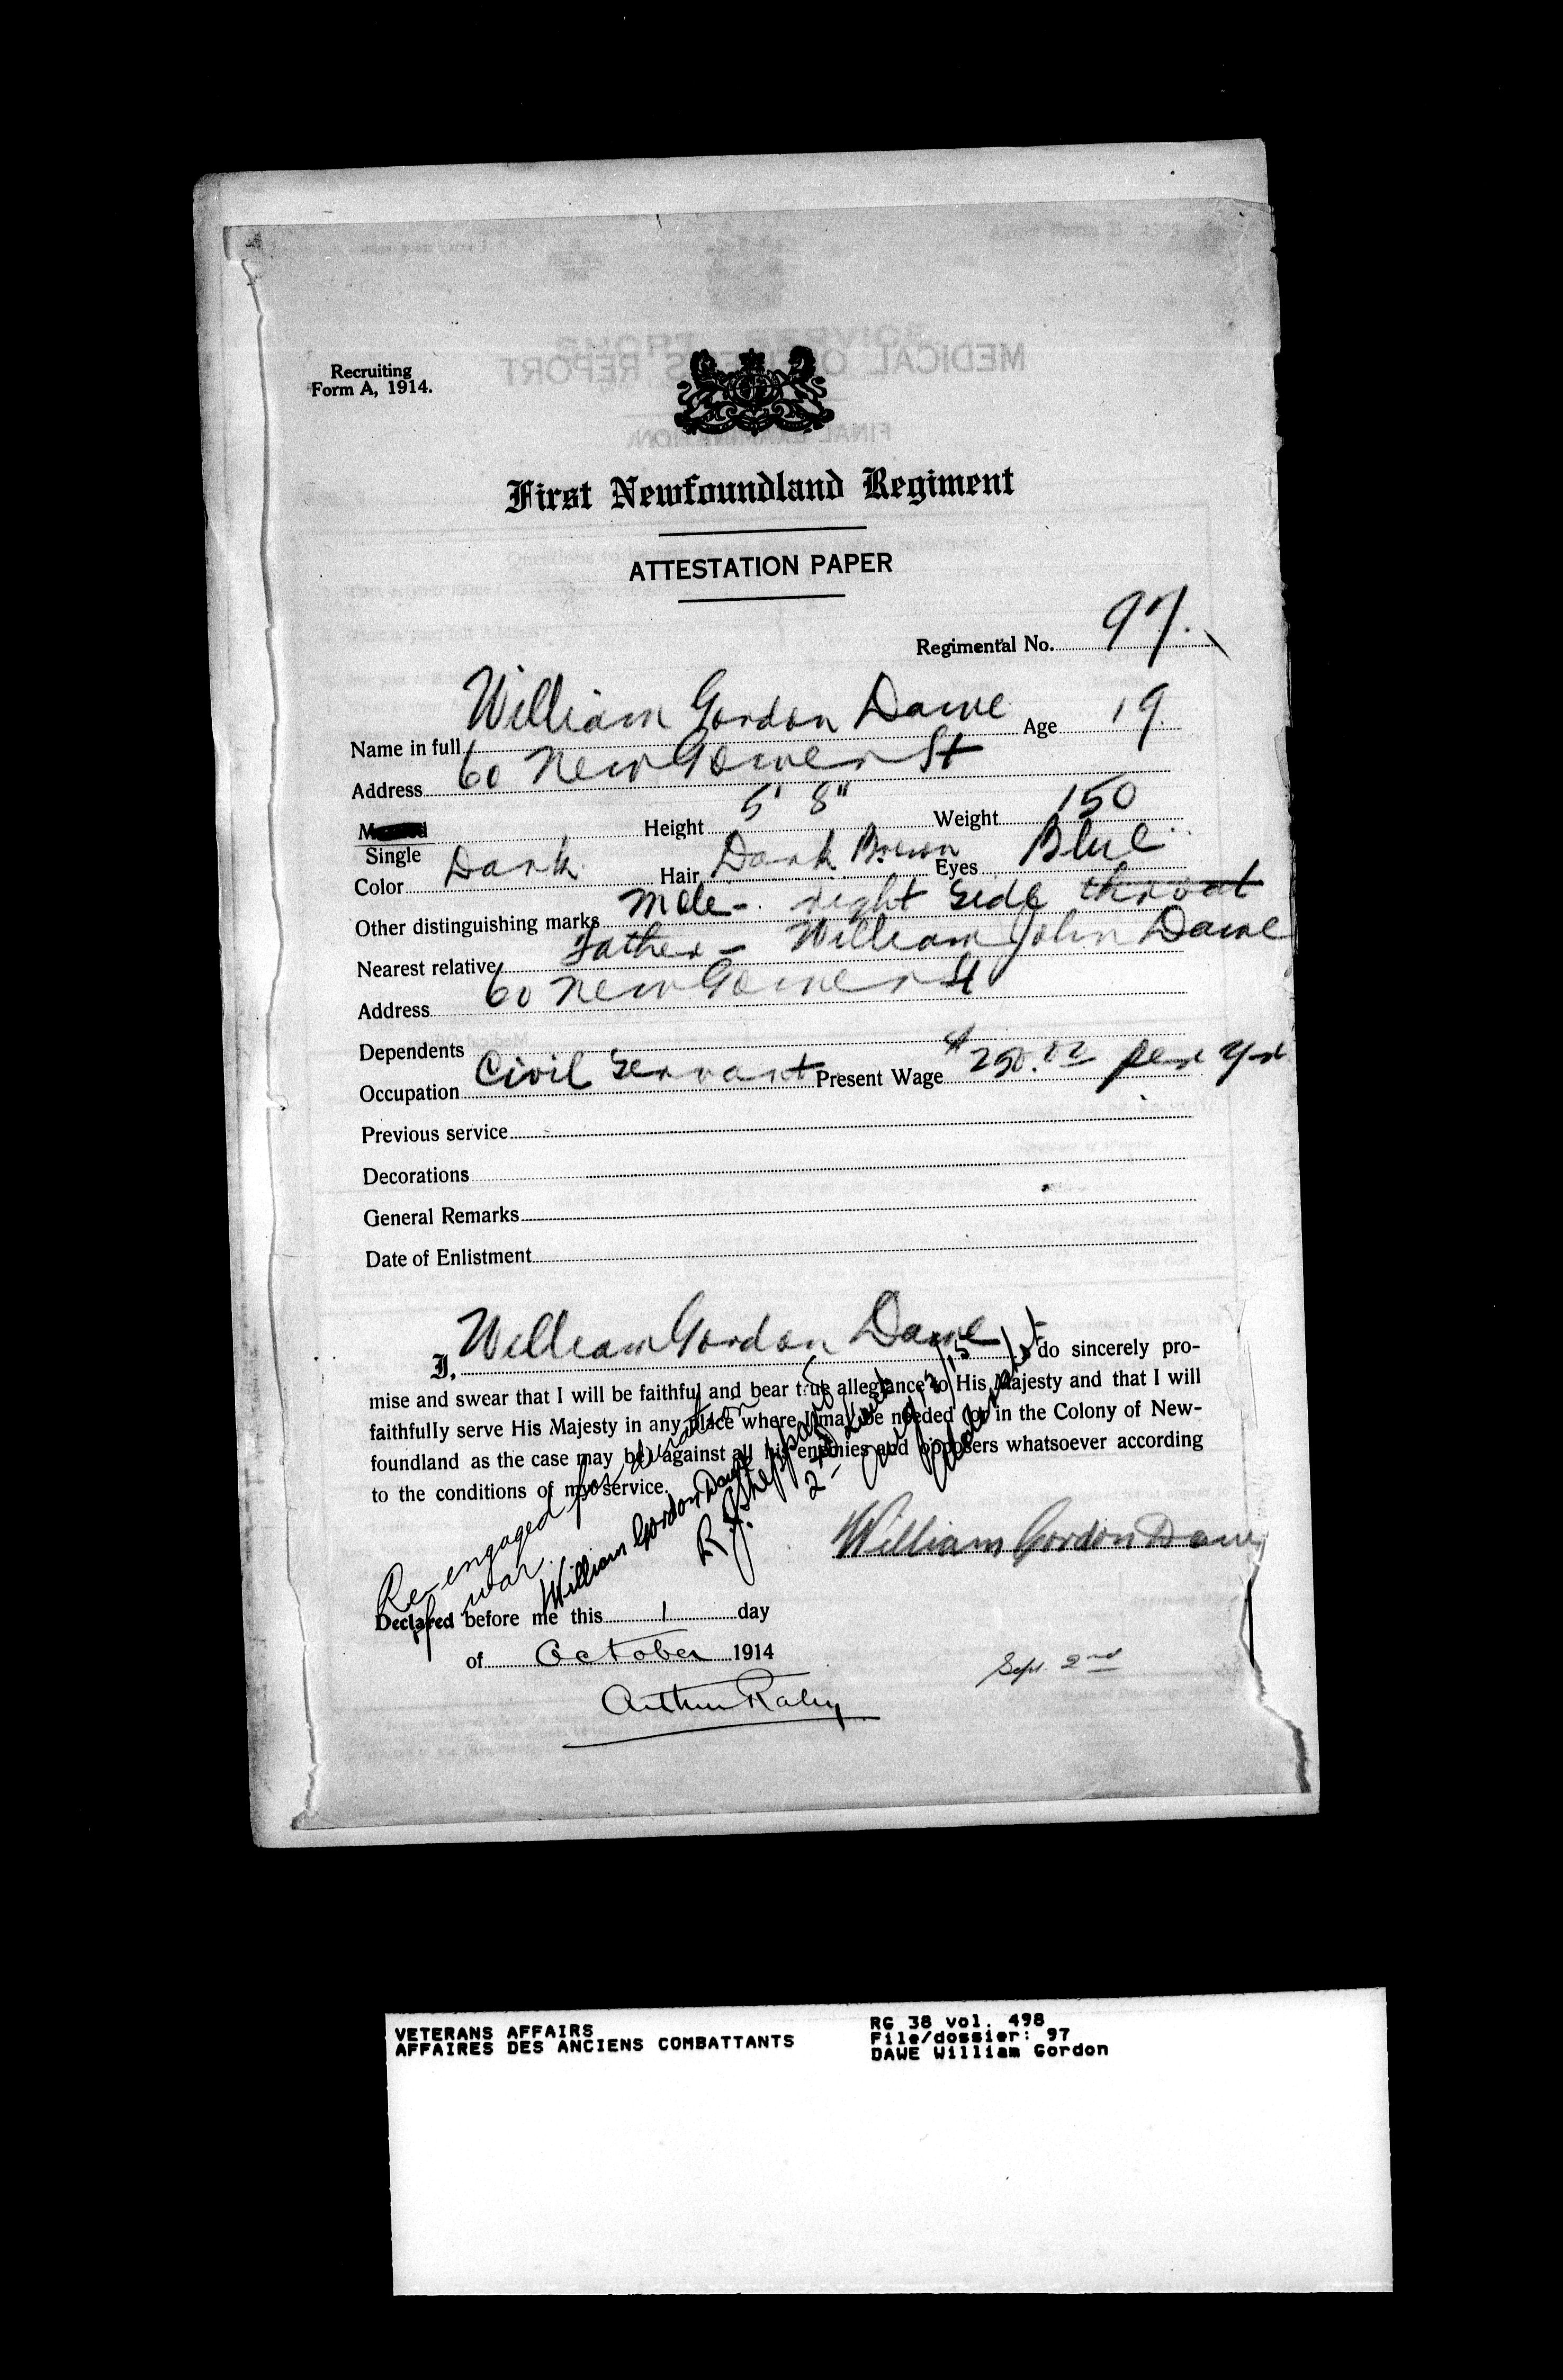 Recruiting
Form A, 1914.
First Newfoundland Regiment
ATTESTATION PAPER
Regimental No. 97.
Name in full William Gordon Dawe Age 19
Address 60 New Gower St
Married
Single
Height 5' 8" Weight 150
Color Dark Hair Dark Brown Eyes Blue
Other distinguishing marks Mole - right side throat
Nearest relative Father - William John Dawe
Address 60 New Gower St
Dependents
Occupation Civil Servant Present Wage $250.00 per
Previous service
Decorations
General Remarks
Date of Enlistment
I, William Gordon Dawe do sincerely pro-
mise and swear that I will be faithful and bear true allegiance to His Majesty and that I will
faithfully serve His Majesty in any place where I may be needed (or in the Colony of New-
foundland as the case may be) against all his enemies and opposers whatsoever according
to the conditions of my service.
Re-engaged for duration
of war.
William Gordon Dawe
R. J. Sheppard
2nd Lieut
William Gordon Dawe
Declared before me this 1 day
of October 1914
Sept. 2nd
Arthur Raley
VETERANS AFFAIRS
AFFAIRES DES ANCIENS COMBATTANTS
RG 38 vol. 498
File/dossier: 97
DAWE William Gordon